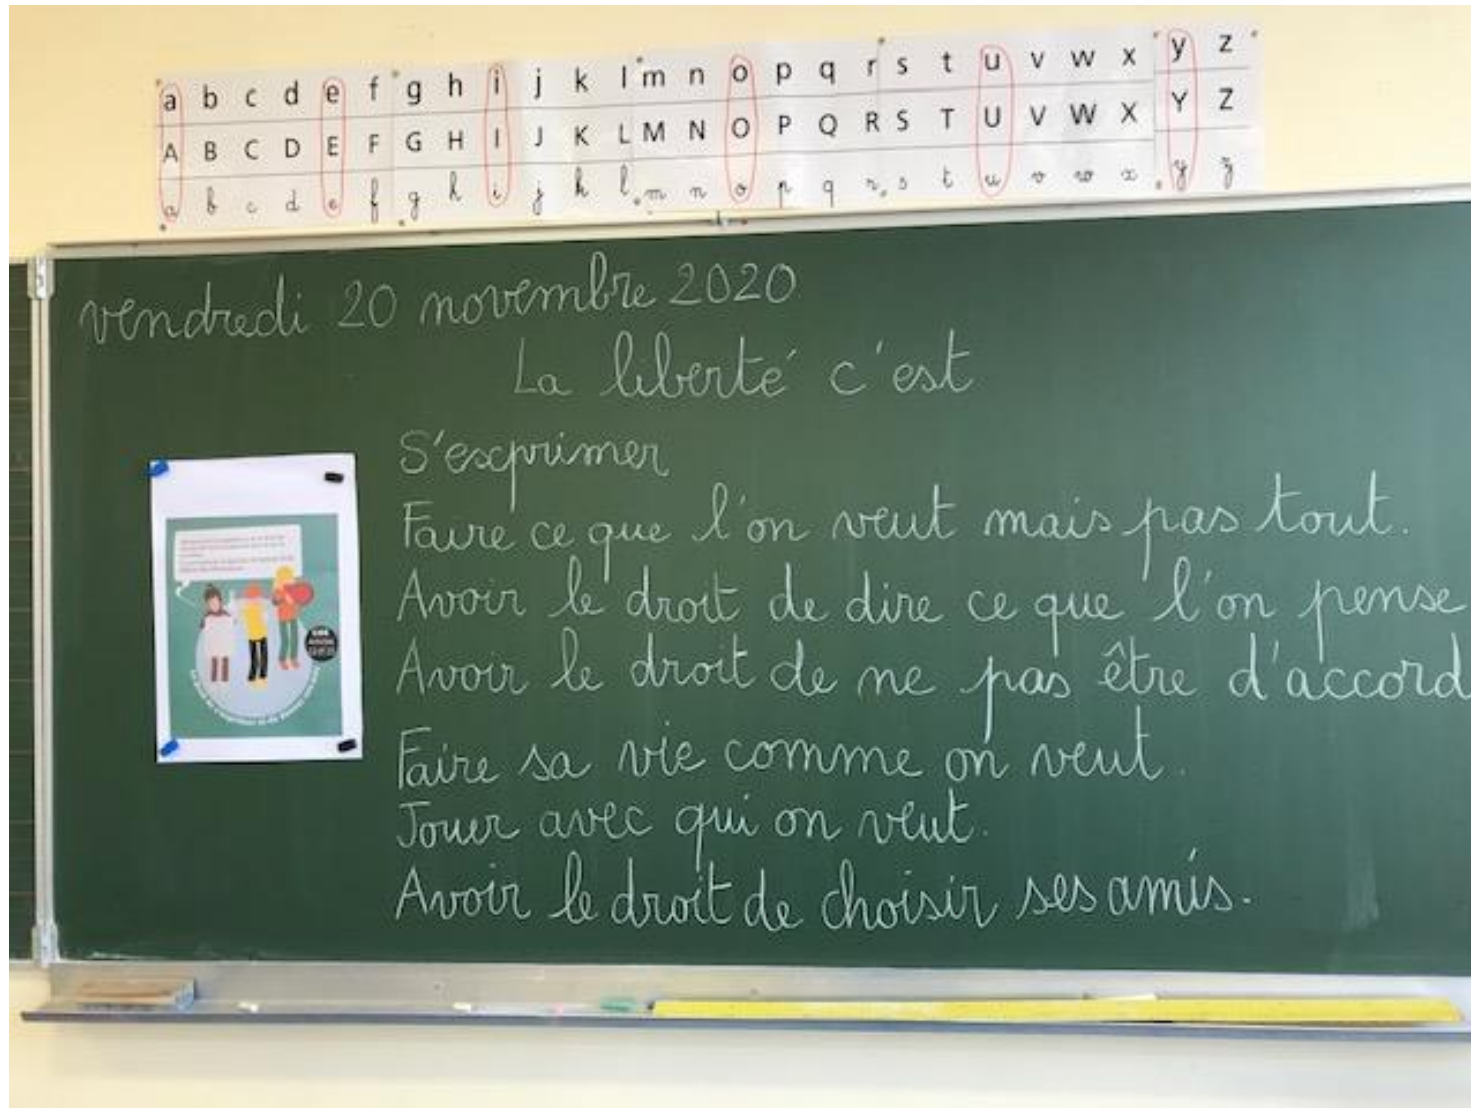 a b c d e f g h i j k l m n o p q r s t u v w x y z
A B C D E F G H I J K L M N O P Q R S T U V W X Y Z
a b c d e f g h i j k l m n o p q r s t u v w x y z
vendredi 20 novembre 2020
La liberté c'est
S'exprimer
Faire ce que l'on veut mais pas tout.
Avoir le droit de dire ce que l'on pense
Avoir le droit de ne pas être d'accord
Faire sa vie comme on veut.
Jouer avec qui on veut.
Avoir le droit de choisir ses amis.